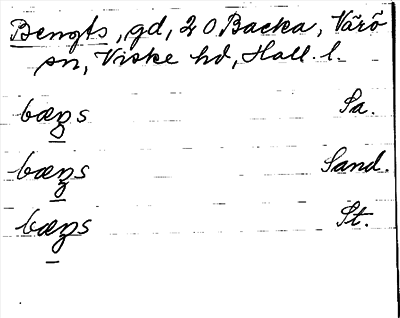 Bengts, gd, 20 Backa, Värö
sn, Viske hd, Hall. l.
bæŋs Sa.
bæŋs Sand.
bæŋs St.